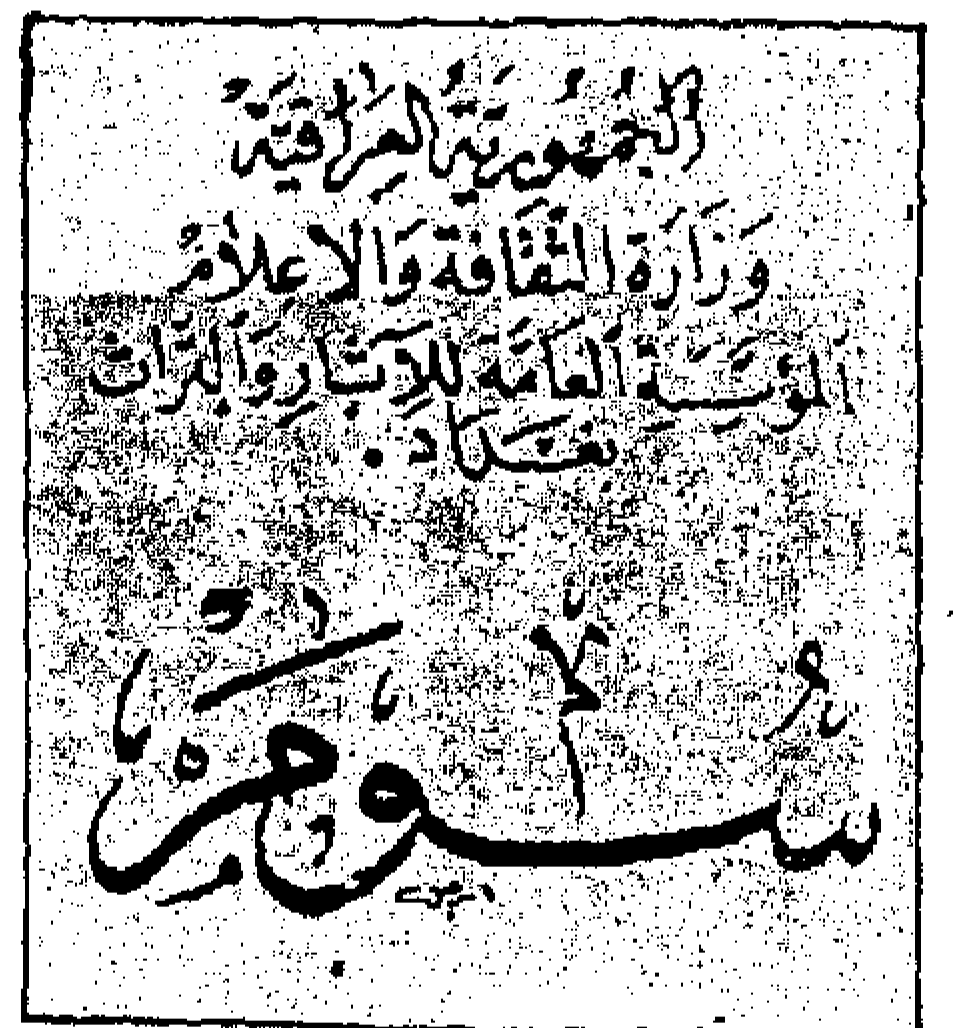 الجُمهُوريَّةُ العِرَاقيَّةُ
وَزَارَةُ الثَّقَافَةِ وَالاِعلَامُ
المُؤسَّسَةِ العَامَّة لِلآثَارِ وَالتُّرَاث
بَغْدَاد
سُومَر